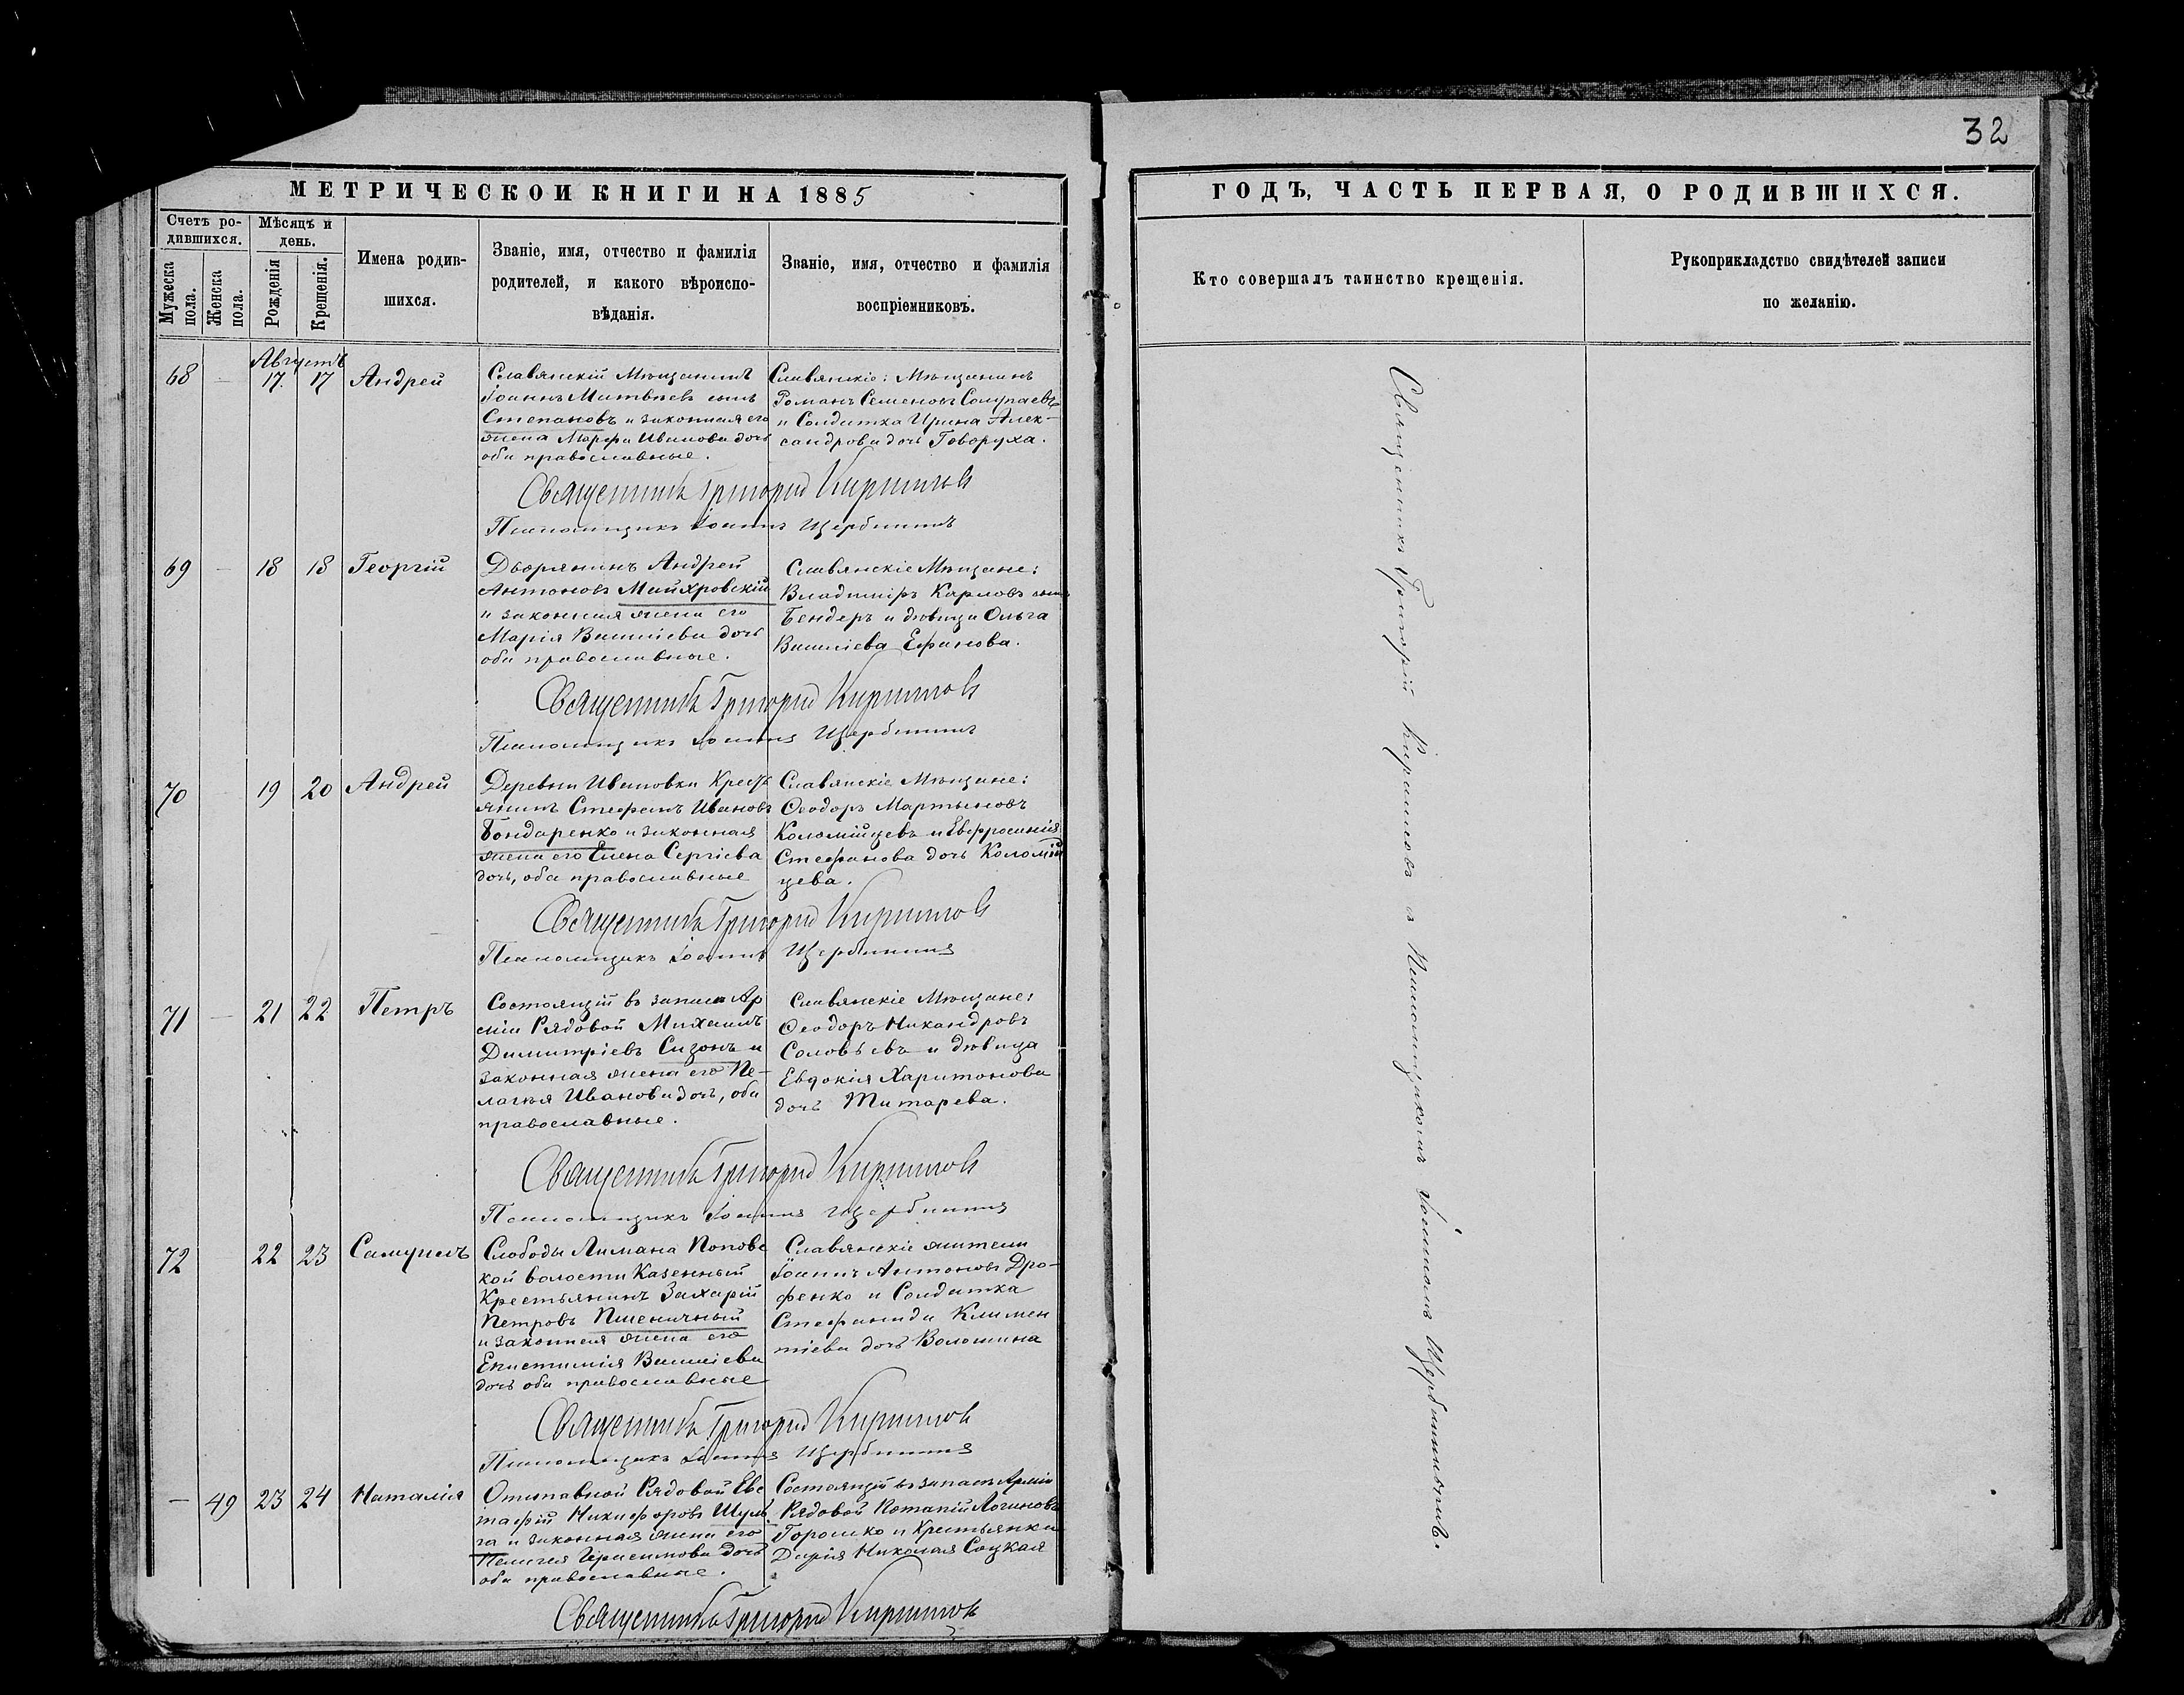 32
МЕТРИЧЕСКОЙ КНИГИ НА 1885
Счетъ ро-
дившихся.
Мужеска
пола.
Женска
пола.
Мѣсяцъ и
день.
Рожденія
Крещенія.
Имена родив-
шихся.
Званіе, имя, отчество и фамилія
родителей, и какого вѣроиспо-
вѣданія.
Званіе, имя, отчество и фамилія
воспріемниковъ.
Августъ
68 — 17. 17 Андрей
Славянскій Мѣщанинъ
Іоаннъ Матвѣевъ сынъ
Степановъ и законная его
жена Марфа Иванова дочь
оба православные.
Славянскіе: Мѣщанинъ
Романъ Семеновъ
и Солдатка Ирина Алек-
сандрова дочь Говоруха.
Священникъ Григорій Кирилловъ
Псаломщикъ Іоаннъ Щербининъ
69 — 18 18 Георгій
Дворянинъ Андрей
Антоновъ Майхровскій
и законная жена его
Марія Василіева дочь
оба православные.
Славянскіе Мѣщане:
Владиміръ Карловъ сынъ
Бендеръ и дѣвица Ольга
Василіева Ефанова.
Священникъ Григорій Кирилловъ
Псаломщикъ Іоаннъ Щербининъ
70 19 20 Андрей
Деревни Ивановки Кресть
янинъ Стефанъ Ивановъ
Бондаренко и законная
жена его Елена Сергіева
дочь, оба православные
Славянскіе Мѣщане:
Ѳеодоръ Мартыновъ
Коломійцевъ и Евфросинія
Стефанова дочь Коломій
цева.
Священникъ Григорій Кирилловъ
Псаломщикъ Іоаннъ Щербининъ
71 — 21 22 Петръ
Состоящій въ запасѣ Ар
міи Рядовой Михаилъ
Димитріевъ Сизонъ и
законная жена его Пе-
лагія Иванова дочь, оба
православные.
Славянскіе Мѣщане:
Ѳеодоръ Никандровъ
Соловьевъ и дѣвица
Евдокія Харитонова
дочь Титарева.
Священникъ Григорій Кирилловъ
Псаломщикъ Іоаннъ Щербининъ
72 22 23 Самуилъ
Слободы Лимана Поповс
кой волости Казенный
Крестьянинъ Захарій
Петровъ Пшеничный
и законная жена его
Епистимія Василіева
дочь оба православные
Славянскіе жители
Іоаннъ Антоновъ Дро-
фенко и Солдатка
Стефанида Климен
тіева дочь Волошина
Священникъ Григорій Кирилловъ
Псаломщикъ Іоаннъ Щербининъ
— 49 23 24 Наталія
Отставной Рядовой Евс
тафій Никифоровъ Шуль
га и законная жена его
Пелагея Герасимова дочь
оба православные.
Состоящій въ запасѣ Арміи
Рядовой Потапій Логиновъ
Горошко и Крестьянка
Дарія Николая Соцкая
Священникъ Григорій Кирилловъ
ГОДЪ, ЧАСТЬ ПЕРВАЯ, О РОДИВШИХСЯ.
Кто совершалъ таинство крещенія.
Рукоприкладство свидѣтелей записи
по желанію.
Священникъ Григорій Кирилловъ съ Псаломщикомъ Іоанномъ Щербининымъ.